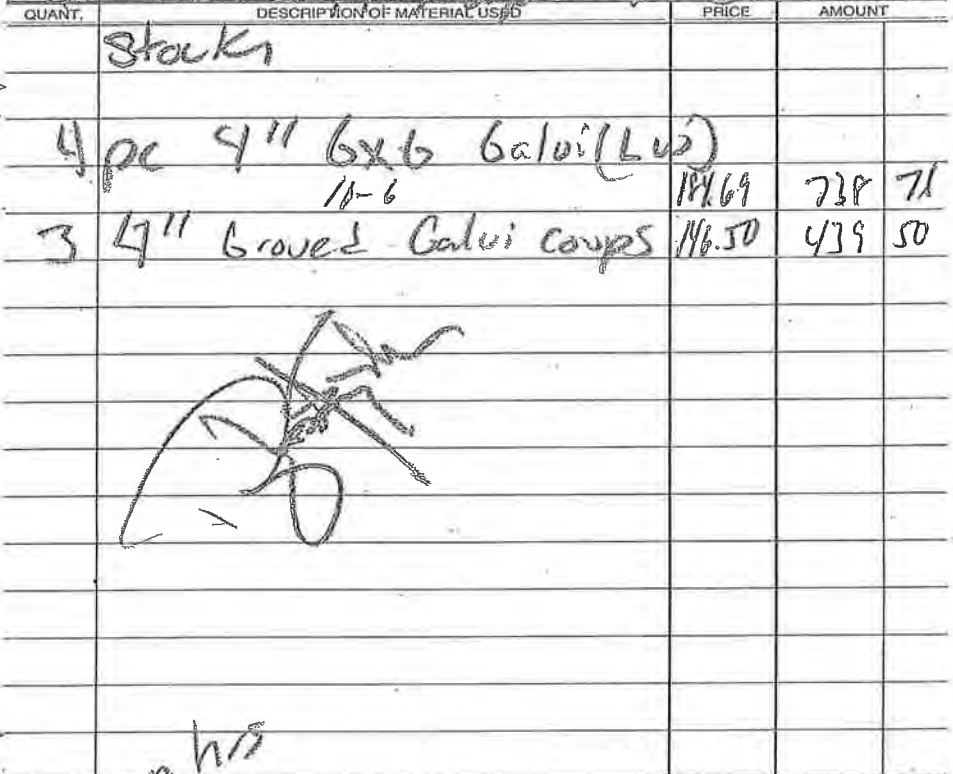 QUANT. DESCRIPTION OF MATERIAL USED PRICE AMOUNT
Stock
4 pc 4" GxG Galvi (LW)
10-6 184.69 738 71
3 4" Groved Galvi coups 146.50 439 50
hrs